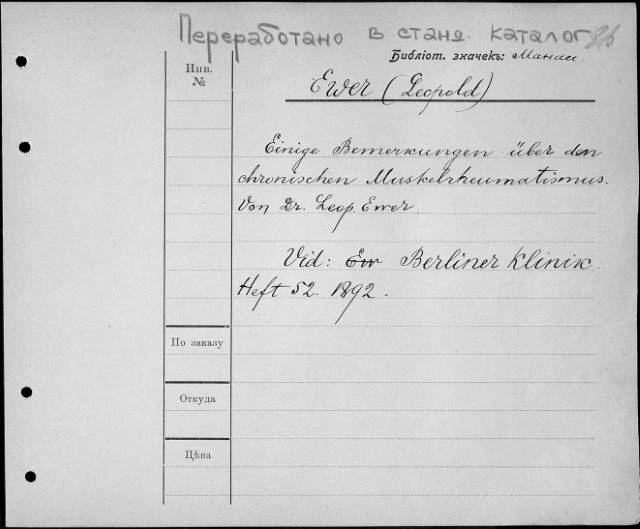 Переработано в станд. каталог
Библіот. значекъ: Манас.
Инв.
№
Ewer (Leopold)
Einige Bemerkungen über den
chronischen Muskelrheumatismus.
Von Dr. Leop. Ewer.
Vid: Berliner Klinik.
Heft 52. 1892.
По заказу
Откуда
Цѣна